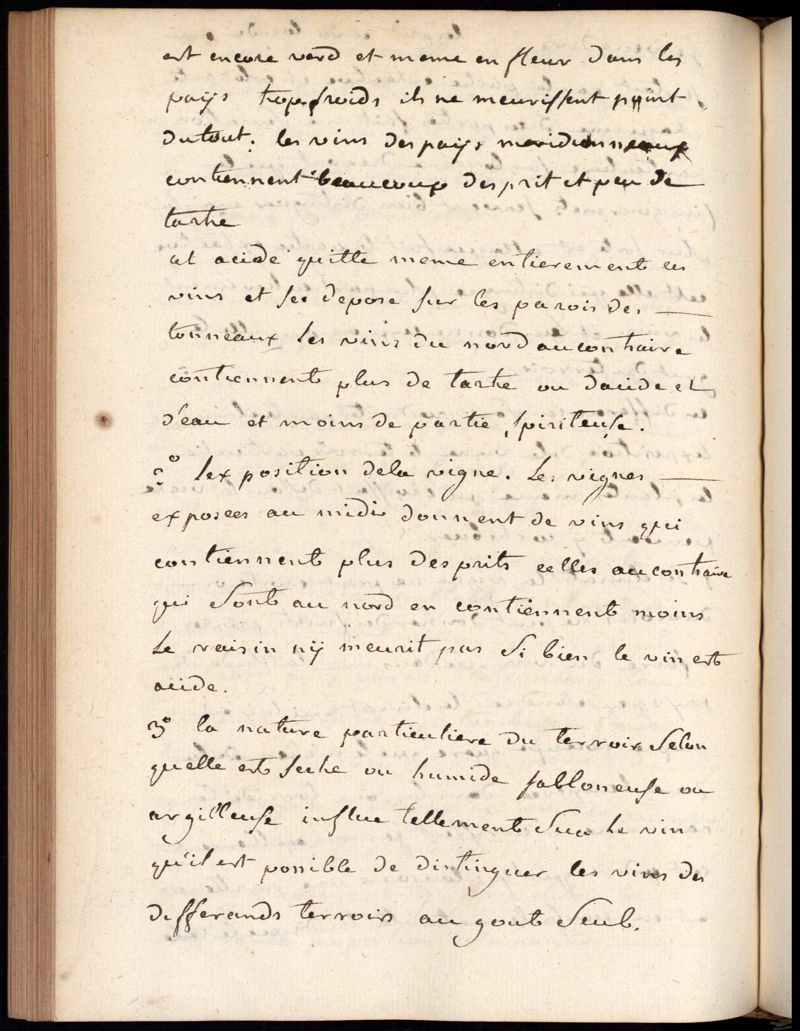 est encore verd et meme en fleur dans les
pays trop froids ils ne meurissent point
dutout. les vins des pays meridionneaux
contiennent beaucoup desprit et peu de
tartre
cet acide quitte meme entierement ces
vins et se depose sur les parois des —
tonneaux les vins du nord aucontraire
contiennent plus de tartre ou dacide et
d'eau et moins de partie spiriteuse.
2° lexposition dela vigne. Les vignes —
exposées au midi donnent de vins qui
contiennent plus desprits celles aucontraire
qui sont au nord en contiennent moins
Le raisin nÿ meurit pas si bien le vin est
acide.
3° la nature particuliere du terroir selon
quelle est seche ou humide sabloneuse ou
argilleuse influe tellement sur le vin
qu'il est possible de distinguer les vins des
differands terroirs au gout seul.